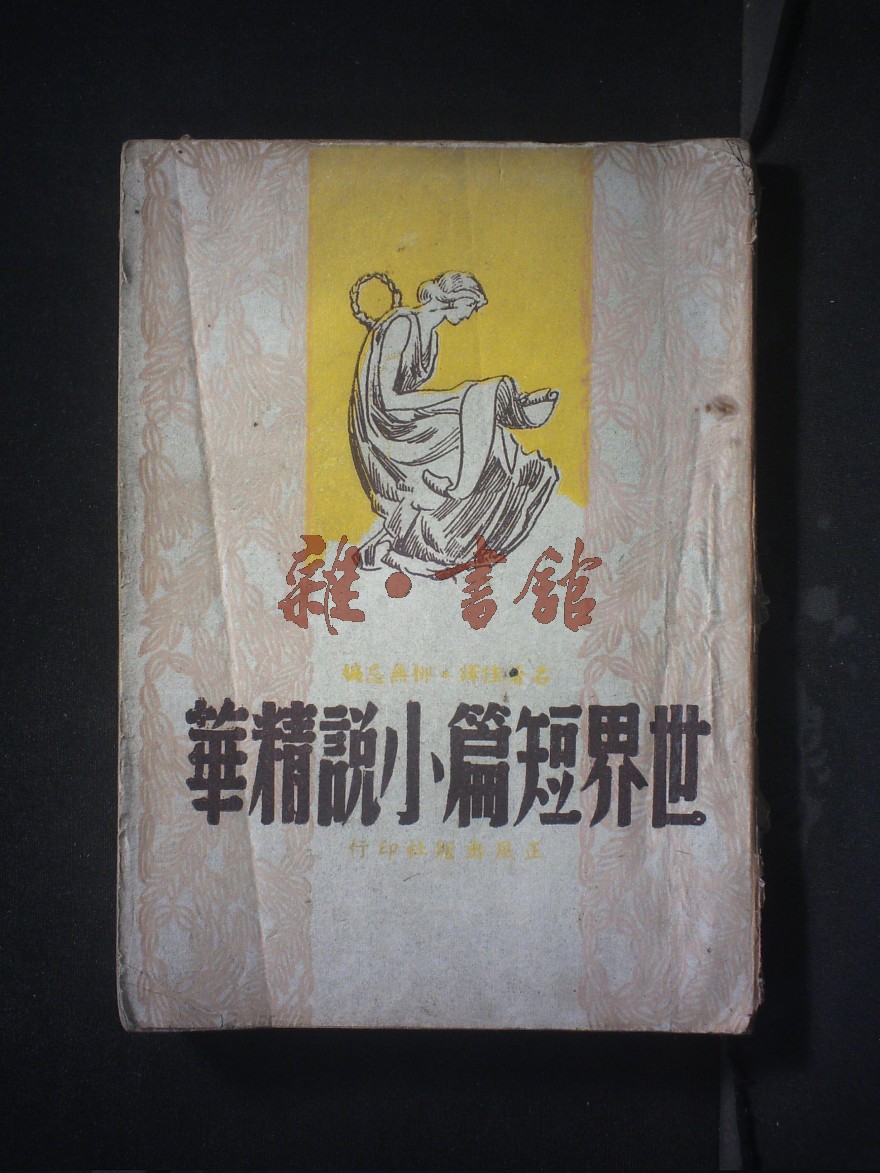 雜·書館
名著佳譯·柳無忌編
世界短篇小說精華
正風出版社印行